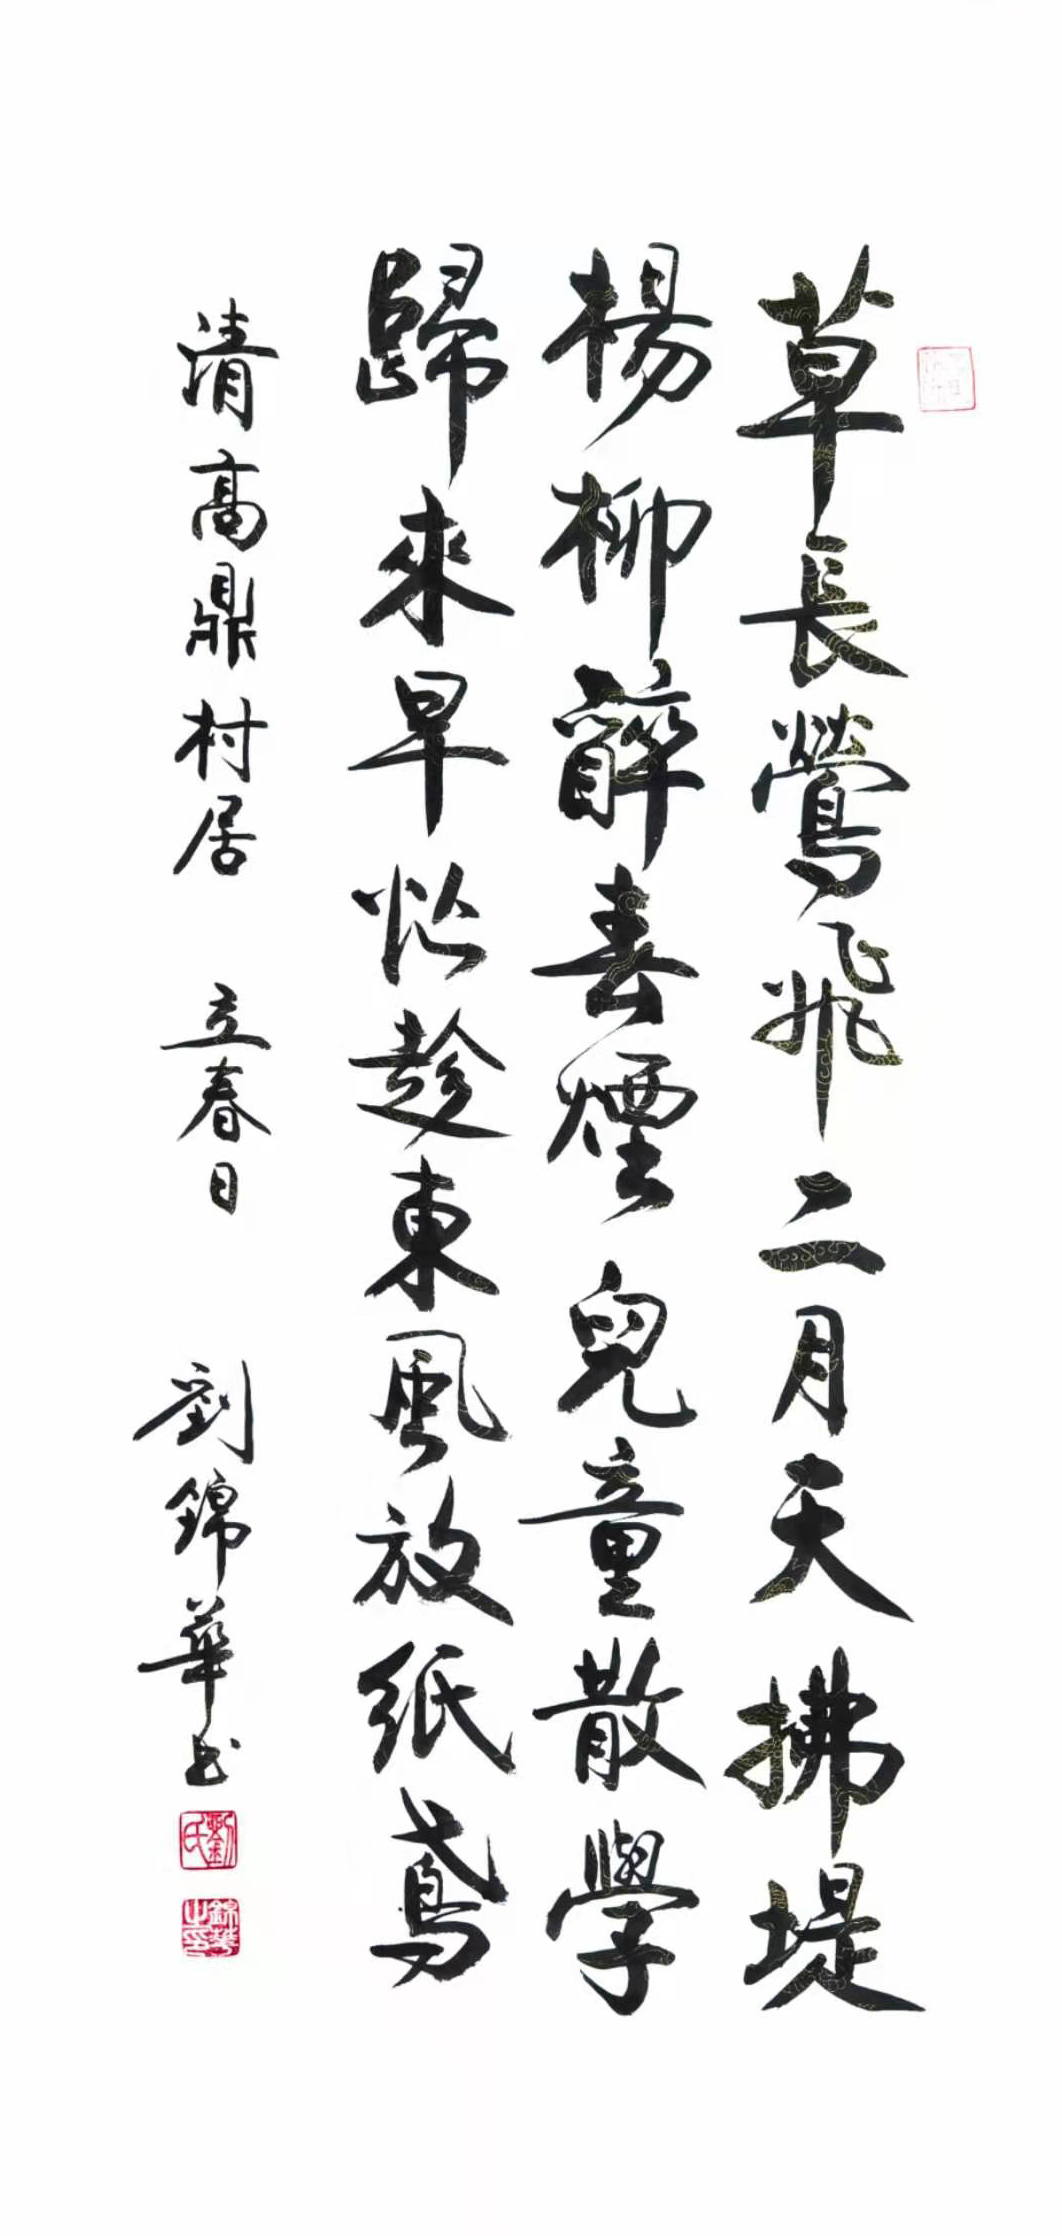 草長鶯飛二月天拂堤
楊柳醉春煙兒童散學
歸來早忙趁東風放紙鳶
清高鼎村居 立春日 劉錦華书
劉氏
錦華之印